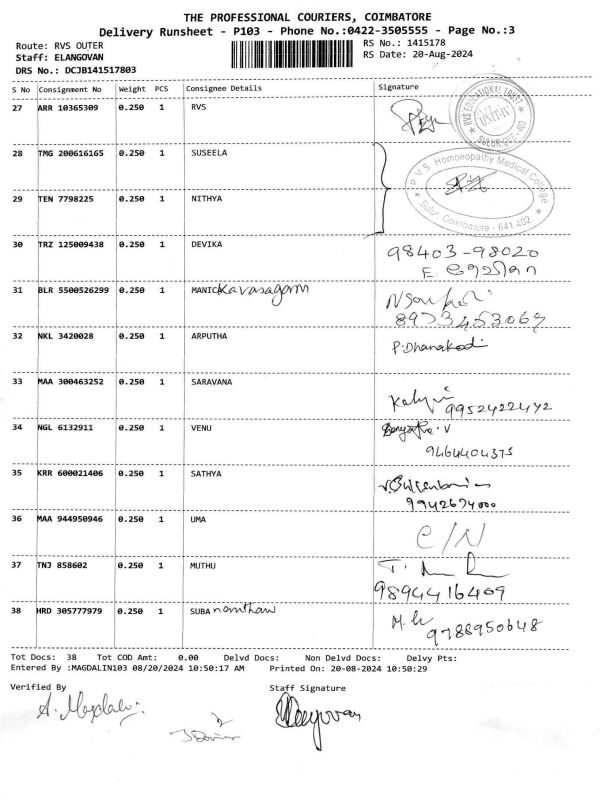 THE PROFESSIONAL COURIERS, COIMBATORE
Delivery Runsheet - P103 - Phone No.:0422-3505555 - Page No.:3
Route: RVS OUTER
RS No.: 1415178
Staff: ELANGOVAN
RS Date: 20-Aug-2024
DRS No.: DCJB141517803
S No Consignment No Weight PCS Consignee Details Signature
27 ARR 10365309 0.250 1 RVS
RVS EDUCATIONAL TRUST
UNIT-IV
28 TMG 200616165 0.250 1 SUSEELA
R.V.S. Homoeopathy Medical College
Sulur, Coimbatore - 641 402.
29 TEN 7798225 0.250 1 NITHYA
30 TRZ 125009438 0.250 1 DEVIKA 98403-98020
31 BLR 5500526299 0.250 1 MANICKavasagam
8973453067
32 NKL 3420028 0.250 1 ARPUTHA P.Dhanakodi
33 MAA 300463252 0.250 1 SARAVANA
9952422472
34 NGL 6132911 0.250 1 VENU
9464404375
35 KRR 600021406 0.250 1 SATHYA
9942674000
36 MAA 944950946 0.250 1 UMA C/N
37 TNJ 858602 0.250 1 MUTHU
9894416409
38 HRD 305777979 0.250 1 SUBA
9788950648
Tot Docs: 38 Tot COD Amt: 0.00 Delvd Docs: Non Delvd Docs: Delvy Pts:
Entered By :MAGDALIN103 08/20/2024 10:50:17 AM Printed On: 20-08-2024 10:50:29
Verified By Staff Signature